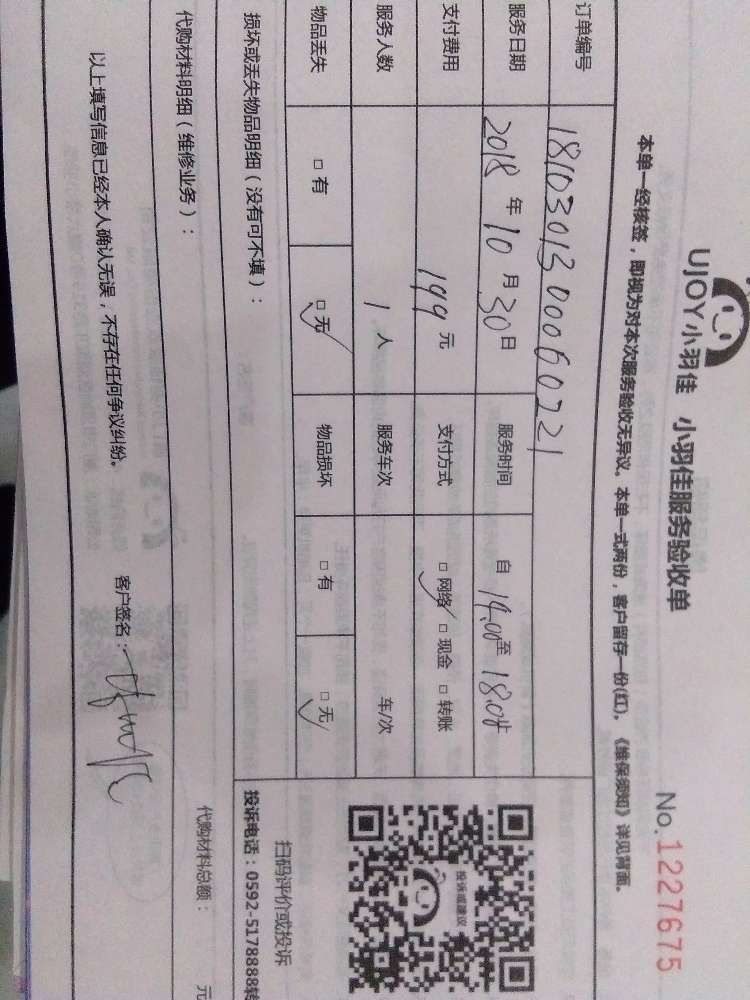 UJOY小羽佳 小羽佳服务验收单
No.1227675
本单一经核签，即视为对本次服务验收无异议。本单一式两份，客户留存一份(红)。《维保须知》详见背面。
订单编号 181030130060221
服务日期 2018 年 10 月 30 日 服务时间 自 14:00 至 18:00
支付费用 199 元 支付方式 □ 网络 □ 现金 □ 转账
服务人数 1 人 服务车次 车/次
物品丢失 □ 有 □ 无 物品损坏 □ 有 □ 无
投诉或建议
扫码评价或投诉
投诉电话：0592-5178888转
损坏或丢失物品明细（没有可不填）：
代购材料明细（维修业务）：
代购材料总额： 元
以上填写信息已经本人确认无误，不存在任何争议纠纷。 客户签名：